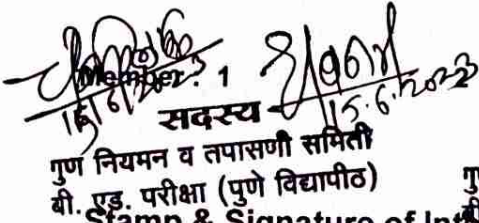 Member : 1
15.6.2023
सदस्य
गुण नियमन व तपासणी समिती
बी. एड. परीक्षा (पुणे विद्यापीठ)
Stamp & Signature of